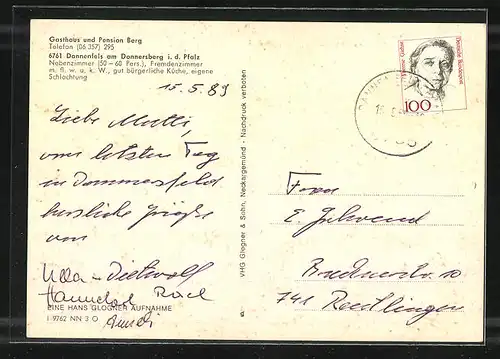 Gasthaus und Pension Berg
Telefon (06 357) 295
6761 Dannenfels am Donnersberg i. d. Pfalz
Nebenzimmer (50 – 60 Pers.), Fremdenzimmer
m. fl. w. u. k. W., gut bürgerliche Küche, eigene
Schlachtung
15.5.89
Liebe Mutti,
vom letzten Tag
in
herzliche Grüße
von
Ulla - Dietwolf
EINE HANS GLOGNER AUFNAHME
I 9762 NN 3 O
VHG Glogner & Sohn, Neckargemünd - Nachdruck verboten
Deutsche Bundespost
100
Frau
E.
10
741 Reutlingen